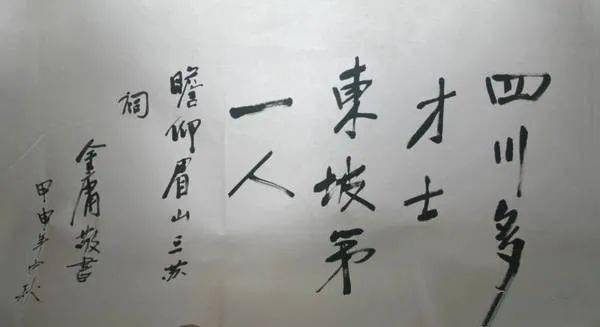 四川多
才士
東坡第
一人
瞻仰眉山三苏
祠
金庸敬書
甲申年中秋